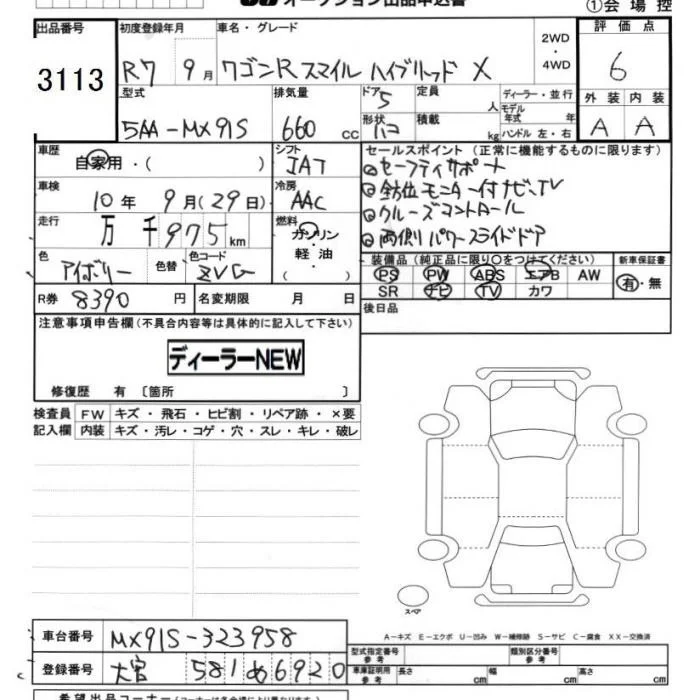 オークション出品申込書
①会場控
出品番号 初度登録年月 車名・グレード 2WD・4WD 評価点
3113 R7 9月 ワゴンR スマイル ハイブリッド X 6
型式 排気量 ドア 定員 人 ディーラー・並行 外装 内装
5AA-MX91S 660 cc 5 モデル年式 年 A A
形状 ハコ 積載 kg ハンドル 左・右
車歴 シフト セールスポイント（正常に機能するものに限ります）
自家用・( ) IAT ◎セーフティサポート
車検 冷房 ◎全方位モニター付ナビ、TV
10年 9月(29日) AAC ◎クルーズコントロール
走行 燃料 ◎両側パワースライドドア
万 千975km ガソリン・軽油・( )
色 色替 色コード 装備品（純正品に限り○をつけてください） 新車保証書
アイボリー ZVG PS PW ABS エアB AW 有・無
SR ナビ TV カワ
R券 8390円 名変期限 月 日 後日品
注意事項申告欄（不具合内容等は具体的に記入して下さい）
ディーラーNEW
修復歴 有 〔箇所 〕
検査員記入欄 FW キズ・飛石・ヒビ割・リペア跡・×要
内装 キズ・汚レ・コゲ・穴・スレ・キレ・破レ
スペア
A-キズ E-エクボ U-凹み W-補修跡 S-サビ C-腐食 XX-交換済
車台番号 MX91S-323958 型式指定番号 参考 類別区分番号 参考
登録番号 大宮 581 め 6920 車庫証明用 参考 長さ cm 幅 cm 高さ cm
希望出品コーナー